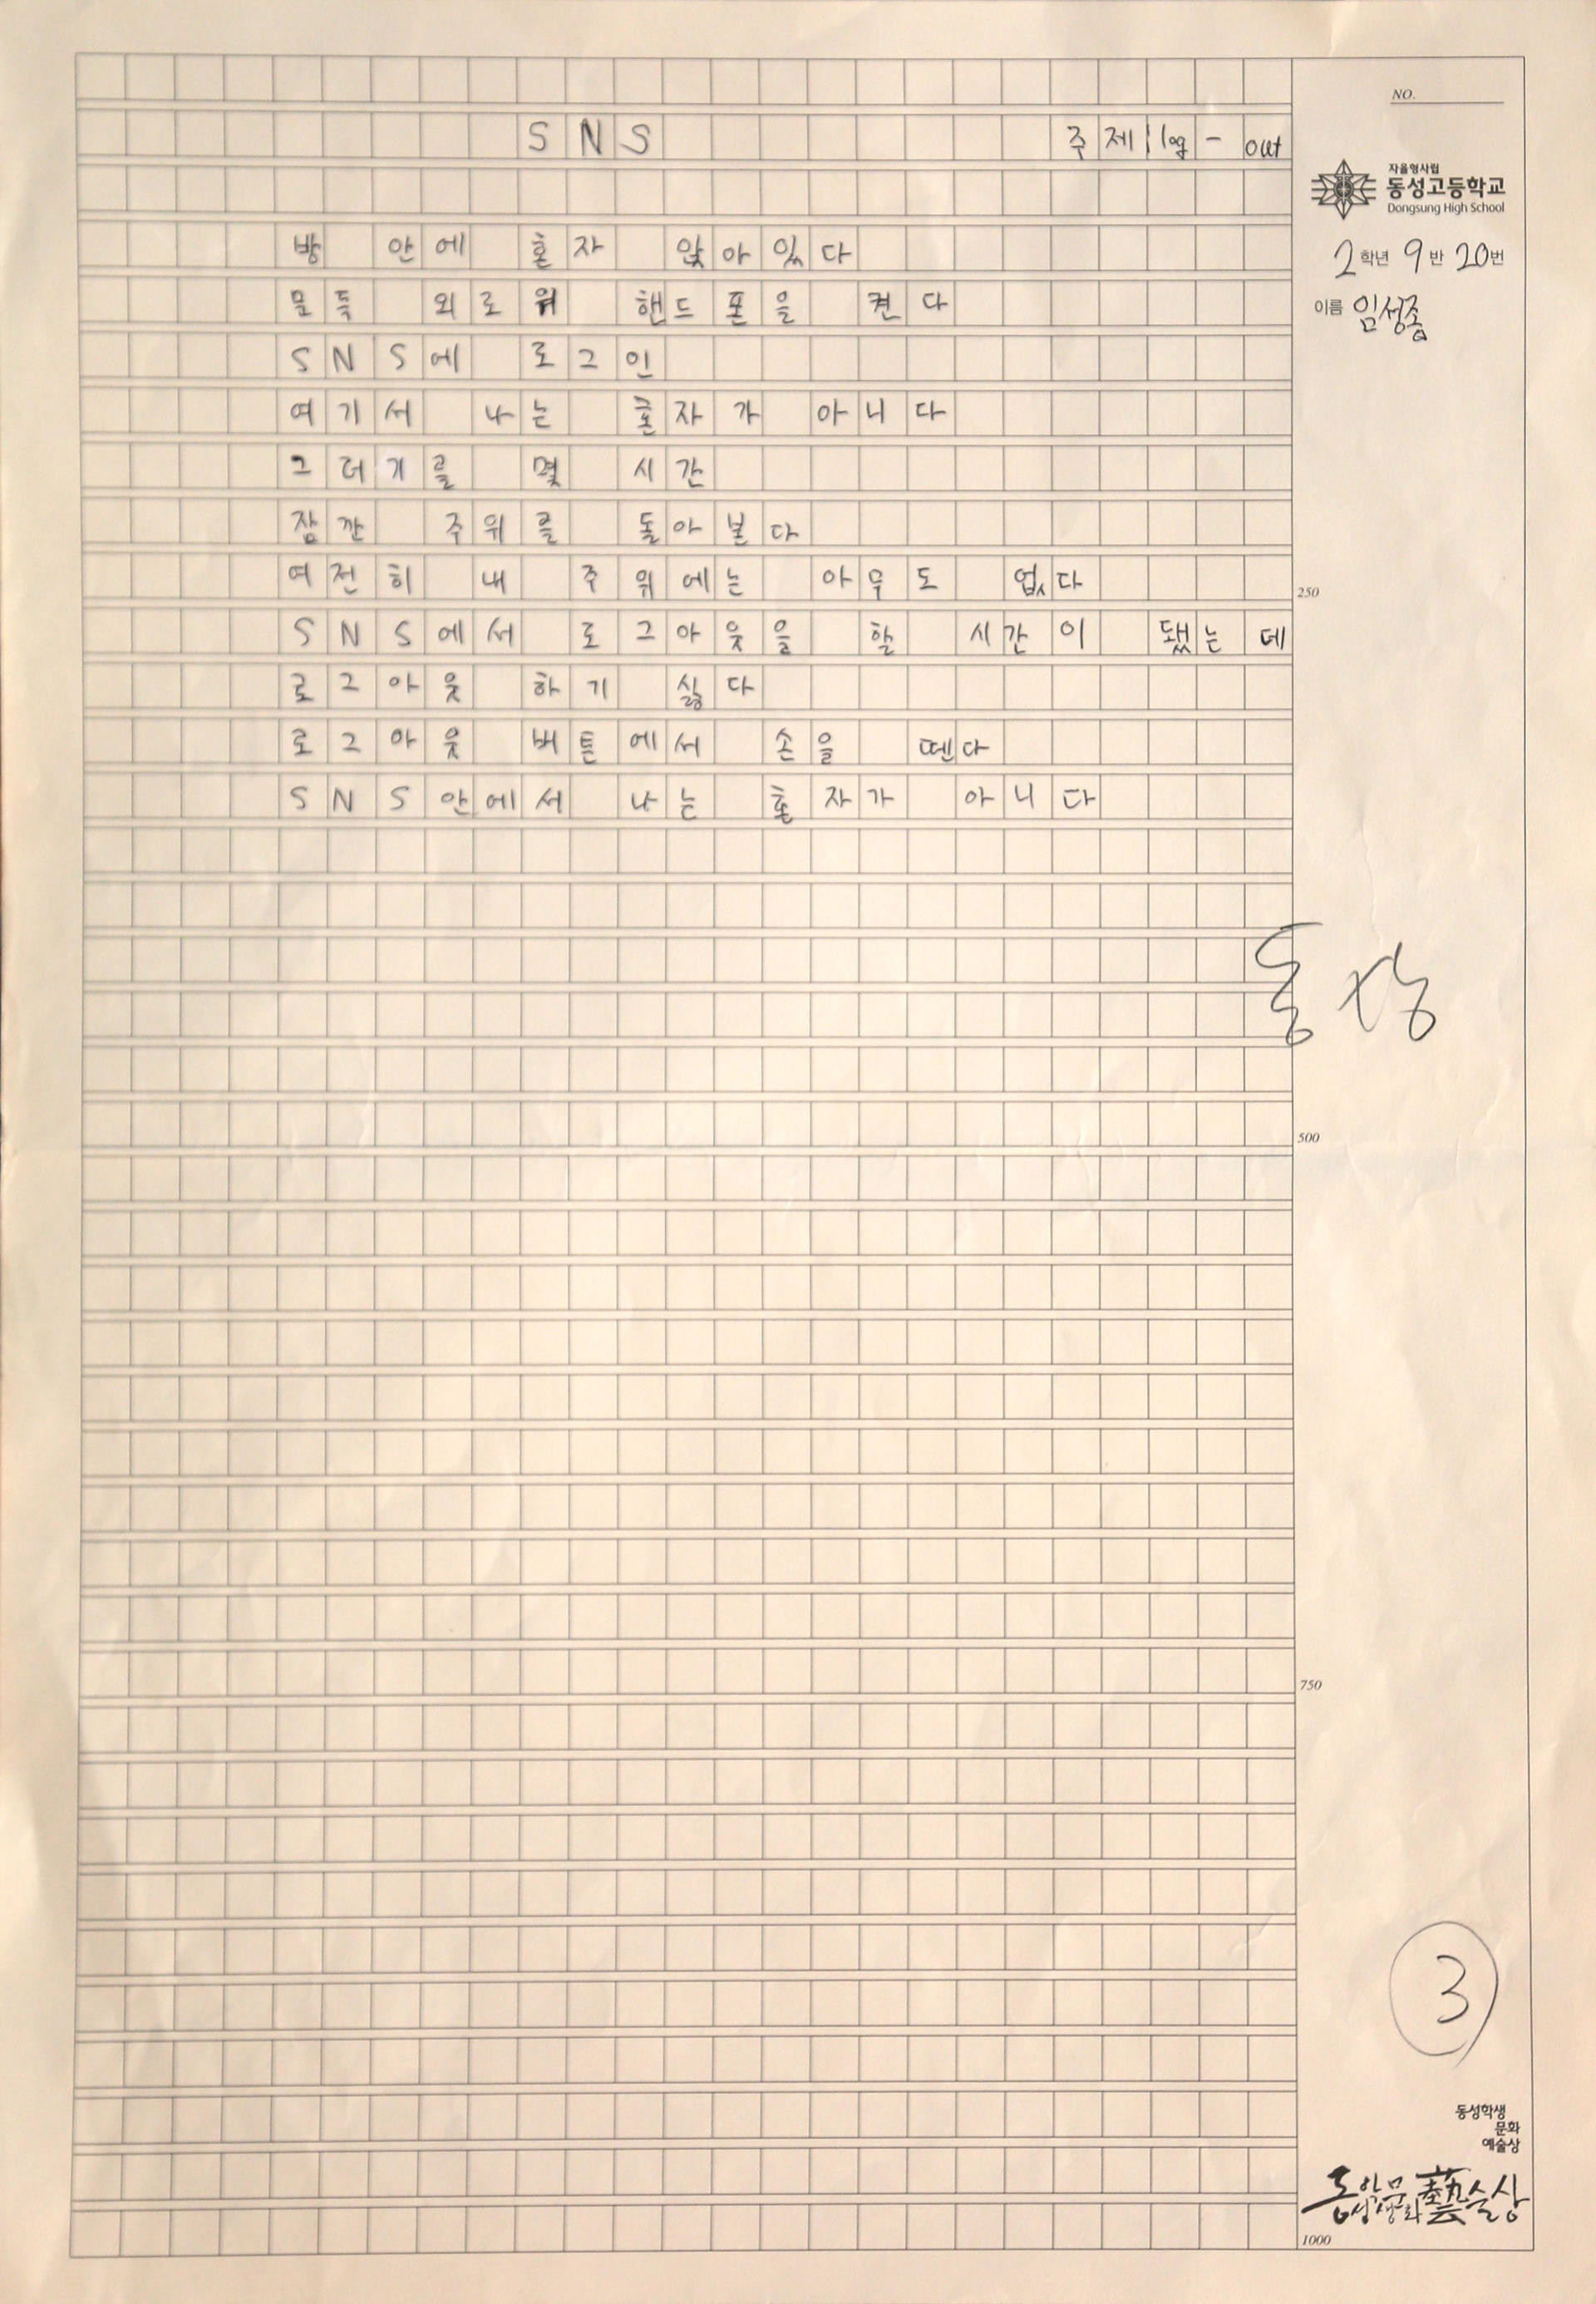 NO.
SNS 주제|log-out
자율형사립
동성고등학교
Dongsung High School
2학년 9반 20번
이름 임성종
방 안에 혼자 앉아있다
문득 외로워 핸드폰을 켠다
SNS에 로그인
여기서 나는 혼자가 아니다
그러기를 몇 시간
잠깐 주위를 돌아본다
여전히 내 주위에는 아무도 없다
250
SNS에서 로그아웃을 할 시간이 됐는데
로그아웃 하기 싫다
로그아웃 버튼에서 손을 뗀다
SNS안에서 나는 혼자가 아니다
동상
500
750
3
동성학생
문화
예술상
동성학생문화藝술상
1000